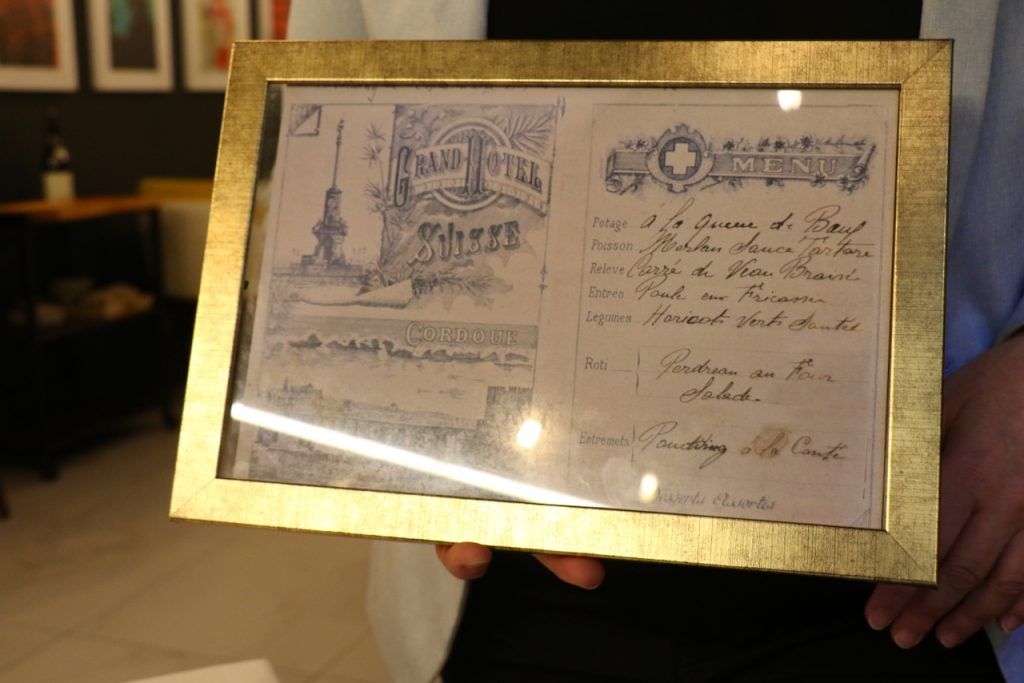 GRAND HOTEL
SUISSE
CORDOUE
MENU
Potage à la queue de Bœuf
Poisson Merlan Sauce Tartare
Releve Carré de Veau Braisé
Entrée Poule en Fricassée
Legumes Haricots Verts Sautés
Roti Perdreau au Four
Salade
Entremets Poudding à la Comte
Desserts Assortis